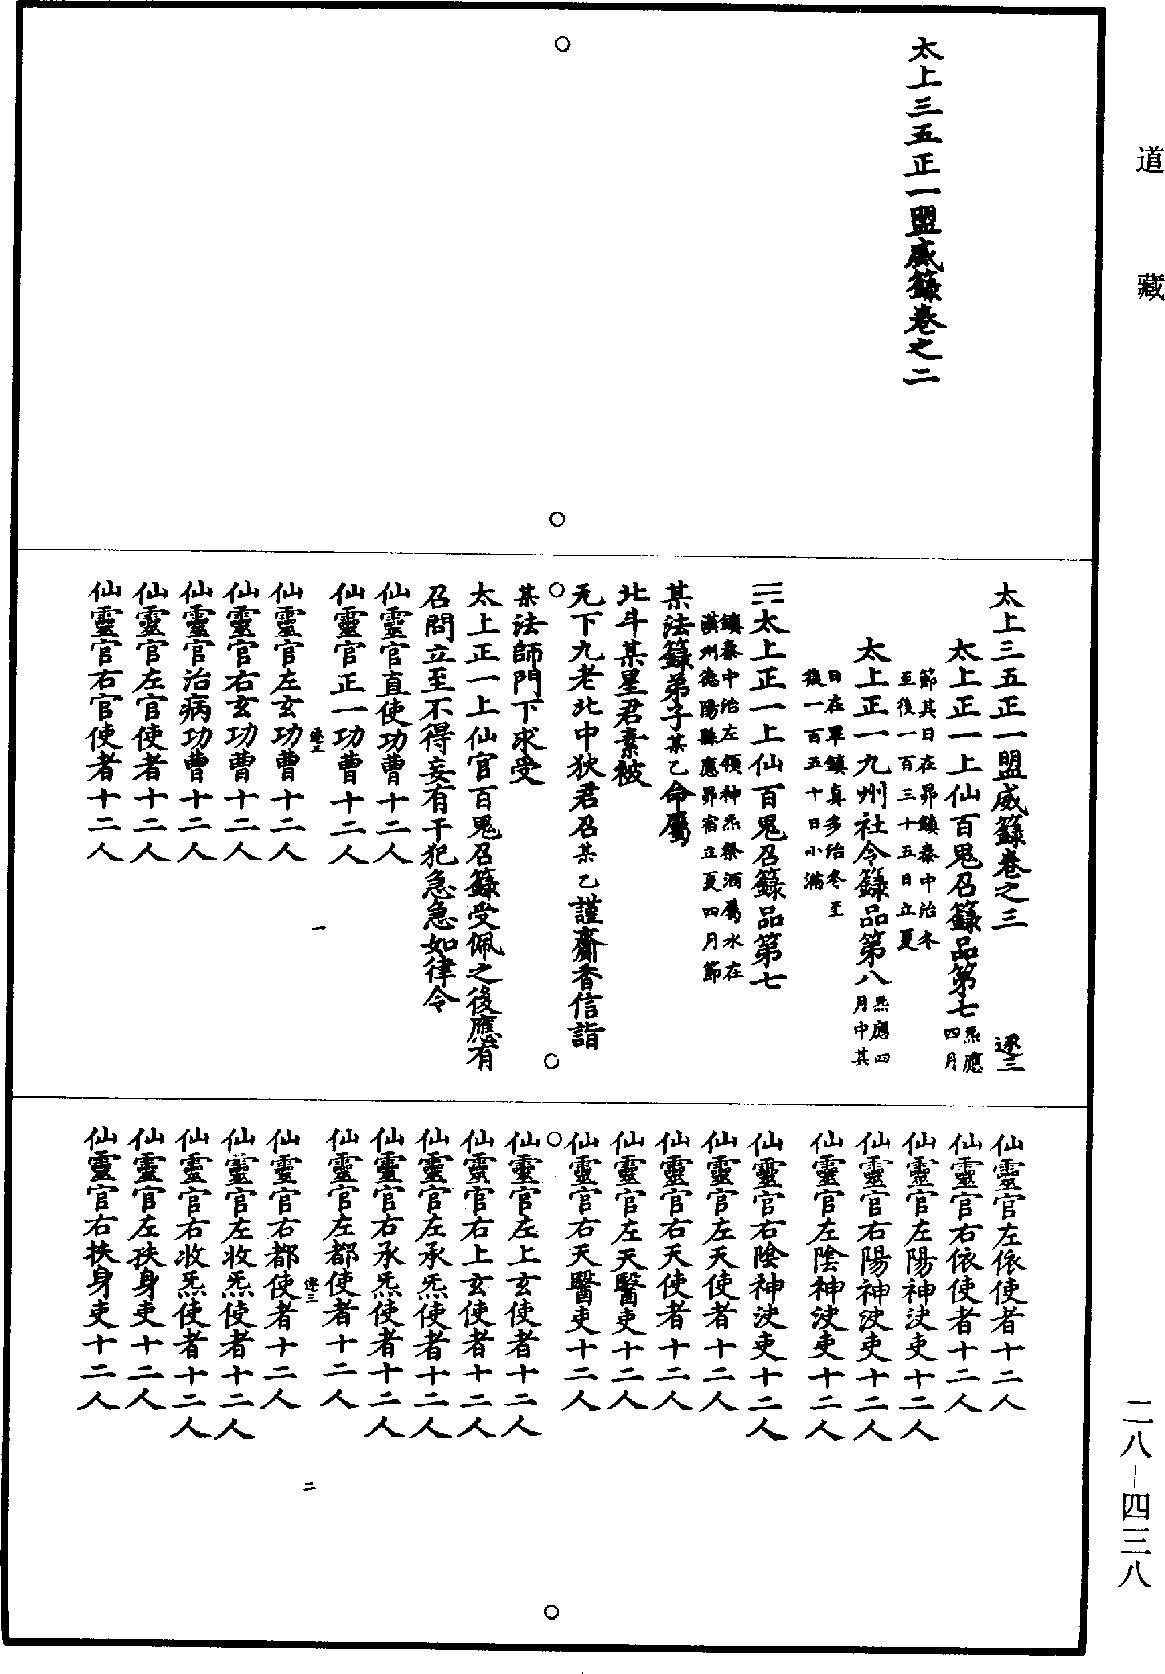 道藏
太上三五正一盟威籙卷之二
太上三五正一盟威籙卷之三
逐三
太上正一上仙百鬼召籙品第七
炁應四月
節其日在昴鎮秦中治冬
至後一百三十五日立夏
太上正一九州社令籙品第八
炁應四月中其
日在畢鎮真多治冬至
後一百五十日小滿
太上正一上仙百鬼召籙品第七
鎮秦中治左領神炁祭酒屬水在
漢州德陽縣應昴宿立夏四月節
某法籙弟子某乙命屬
北斗某星君素被
天下九老北中狄君召某乙謹齎香信詣
某法師門下求受
太上正一上仙官百鬼召籙受佩之後應有
召問立至不得妄有干犯急急如律令
仙靈官直使功曹十二人
仙靈官正一功曹十二人
逐三
一
仙靈官左玄功曹十二人
仙靈官右玄功曹十二人
仙靈官治病功曹十二人
仙靈官左官使者十二人
仙靈官右官使者十二人
仙靈官左依使者十二人
仙靈官右依使者十二人
仙靈官左陽神決吏十二人
仙靈官右陽神決吏十二人
仙靈官左陰神決吏十二人
仙靈官右陰神決吏十二人
仙靈官左天使者十二人
仙靈官右天使者十二人
仙靈官左天醫吏十二人
仙靈官右天醫吏十二人
仙靈官左上玄使者十二人
仙靈官右上玄使者十二人
仙靈官左承炁使者十二人
仙靈官右承炁使者十二人
仙靈官左都使者十二人
逐三
二
仙靈官右都使者十二人
仙靈官左收炁使者十二人
仙靈官右收炁使者十二人
仙靈官左扶身吏十二人
仙靈官右扶身吏十二人
二八-四三八